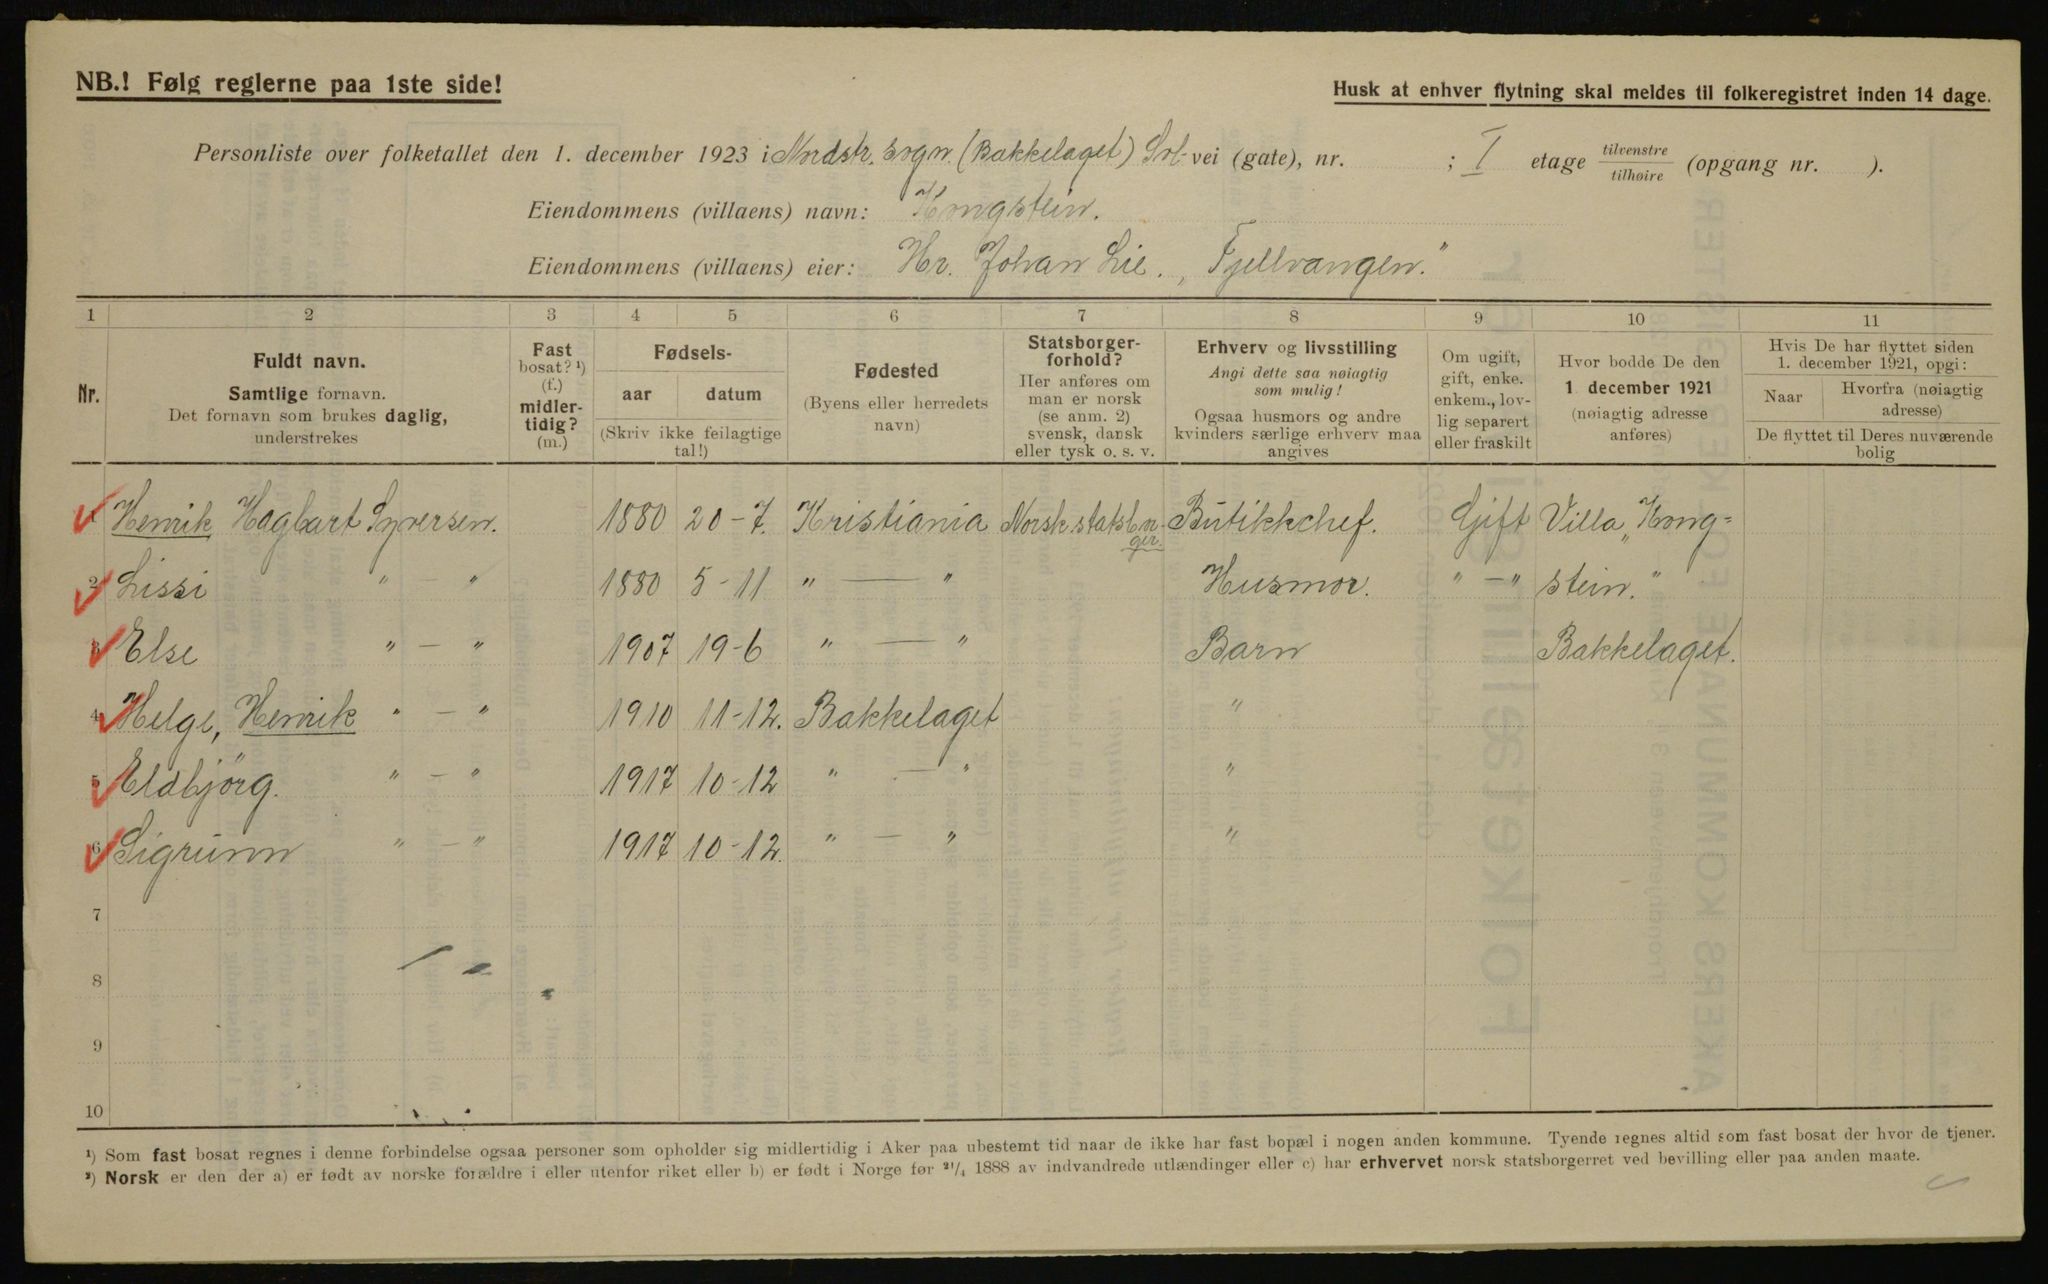 NB.! Følg reglerne paa 1ste side!
Husk at enhver flytning skal meldes til folkeregistret inden 14 dage.
Personliste over folketallet den 1. december 1923 i Nordstr. sogn. (Bakkelaget) Sol- vei (gate), nr. ; I etage tilvenstre tilhøire (opgang nr. ).
Eiendommens (villaens) navn: Kongstein.
Eiendommens (villaens) eier: Hr. Johan Lie. „Fjellvangen."
1 2 3 4 5 6 7 8 9 10 11
Nr.
Fuldt navn.
Samtlige fornavn.
Det fornavn som brukes daglig,
understrekes
Fast
bosat? ¹)
(f.)
midler-
tidig?
(m.)
Fødsels-
aar datum
(Skriv ikke feilagtige
tal!)
Fødested
(Byens eller herredets
navn)
Statsborger-
forhold?
Her anføres om
man er norsk
(se anm. 2)
svensk, dansk
eller tysk o. s. v.
Erhverv og livsstilling
Angi dette saa nøiagtig
som mulig!
Ogsaa husmors og andre
kvinders særlige erhverv maa
angives
Om ugift,
gift, enke.
enkem., lov-
lig separert
eller fraskilt
Hvor bodde De den
1. december 1921
(nøiagtig adresse
anføres)
Hvis De har flyttet siden
1. december 1921, opgi:
Naar
Hvorfra (nøiagtig
adresse)
De flyttet til Deres nuværende
bolig
1 Henrik Hagbart Syversen. 1880 20-7. Kristiania Norsk statsbor- ger. Butikkchef. Gift Villa „Kong-
2 Lissi " — " 1880 5-11 " — " Husmor. " — " stein."
3 Else " — " 1907 19-6 " — " Barn Bakkelaget.
4 Helge, Henrik " — " 1910 11-12. Bakkelaget "
5 Eldbjörg. " — " 1917 10-12 " — " "
6 Sigrunn " — " 1917 10-12. " — " "
7
8
9
10
¹) Som fast bosat regnes i denne forbindelse ogsaa personer som opholder sig midlertidig i Aker paa ubestemt tid naar de ikke har fast bopæl i nogen anden kommune. Tyende regnes altid som fast bosat der hvor de tjener.
²) Norsk er den der a) er født av norske forældre i eller utenfor riket eller b) er født i Norge før ²¹/₄ 1888 av indvandrede utlændinger eller c) har erhvervet norsk statsborgerret ved bevilling eller paa anden maate.